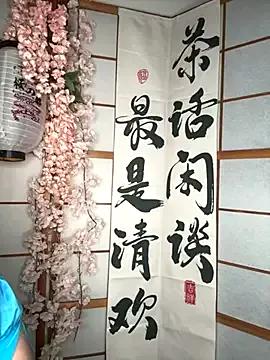 茶话闲谈
最是清欢
吉祥